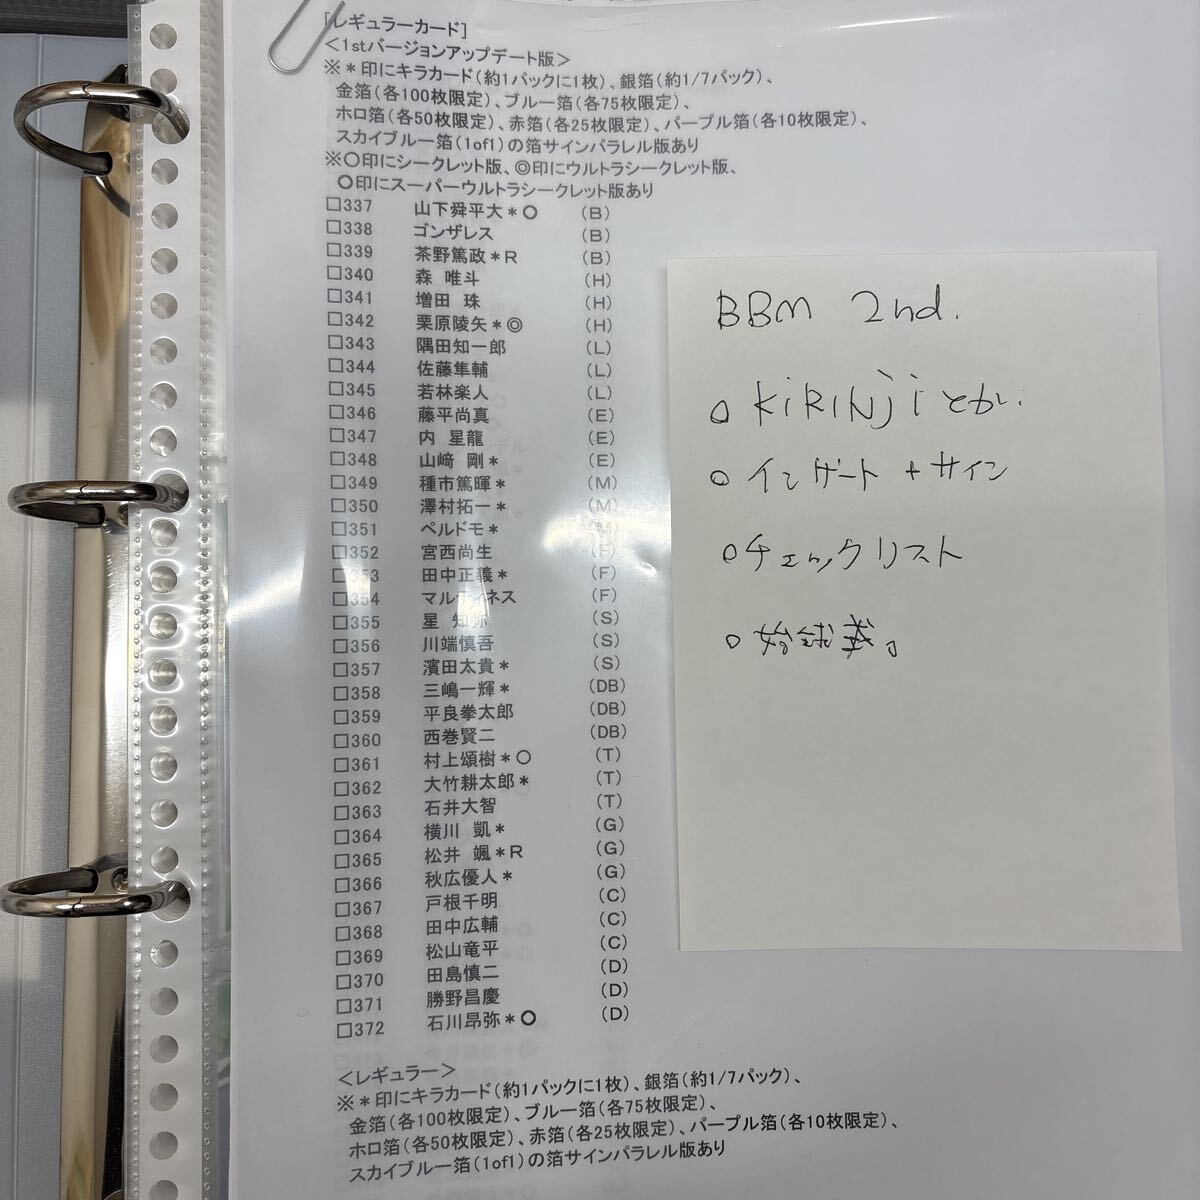 [レギュラーカード]
<1stバージョンアップデート版>
※＊印にキラカード(約1パックに1枚)、銀箔(約1/7パック)、
金箔(各100枚限定)、ブルー箔(各75枚限定)、
ホロ箔(各50枚限定)、赤箔(各25枚限定)、パープル箔(各10枚限定)、
スカイブルー箔(1of1)の箔サインパラレル版あり
※〇印にシークレット版、◎印にウルトラシークレット版、
○印にスーパーウルトラシークレット版あり
□337 山下舜平大＊○ (B)
□338 ゴンザレス (B)
□339 茶野篤政＊R (B)
□340 森 唯斗 (H)
□341 増田 珠 (H)
□342 栗原陵矢＊◎ (H)
□343 隅田知一郎 (L)
□344 佐藤隼輔 (L)
□345 若林楽人 (L)
□346 藤平尚真 (E)
□347 内 星龍 (E)
□348 山﨑 剛＊ (E)
□349 種市篤暉＊ (M)
□350 澤村拓一＊ (M)
□351 ペルドモ＊ (M)
□352 宮西尚生 (F)
□353 田中正義＊ (F)
□354 マルティネス (F)
□355 星 知弥 (S)
□356 川端慎吾 (S)
□357 濱田太貴＊ (S)
□358 三嶋一輝＊ (DB)
□359 平良拳太郎 (DB)
□360 西巻賢二 (DB)
□361 村上頌樹＊〇 (T)
□362 大竹耕太郎＊ (T)
□363 石井大智 (T)
□364 横川 凱＊ (G)
□365 松井 颯＊R (G)
□366 秋広優人＊ (G)
□367 戸根千明 (C)
□368 田中広輔 (C)
□369 松山竜平 (C)
□370 田島慎二 (D)
□371 勝野昌慶 (D)
□372 石川昂弥＊○ (D)
<レギュラー>
※＊印にキラカード(約1パックに1枚)、銀箔(約1/7パック)、
金箔(各100枚限定)、ブルー箔(各75枚限定)、
ホロ箔(各50枚限定)、赤箔(各25枚限定)、パープル箔(各10枚限定)、
スカイブルー箔(1of1)の箔サインパラレル版あり
BBM 2nd.
○ KiRINjiとか.
○ インサート+サイン
○チェックリスト
○ 始球式。